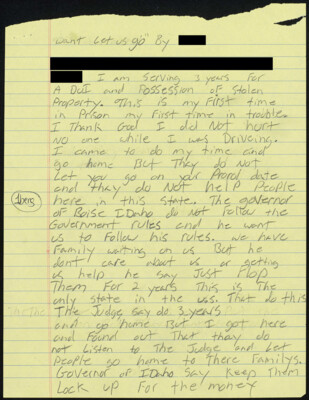 "Wont Let us go" By
I am serving 3 years for
A DUI and Possession of Stolen
Property. This is my First time
in Prison my First time in trouble.
I Thank God I did Not hurt
No one while I was Driving.
I came to do my time and
go home But They do Not
Let you go on your Parol date
and they do Not help People
here in this state. The governor
of Boise IDaho do Not Follow the
Government rules and he want
us to Follow his rules. we have
Family waiting on us But he
don't care about us or getting
us help he say Just Flop
Them For 2 years This is The
only state in the u.s. That do this
The Judge say do 3 years
and go home But I got here
and Found out That they do
not Listen to The Judge and Let
People go home to There Familys.
Governor of IDaho say Keep Them
Lock up For the money